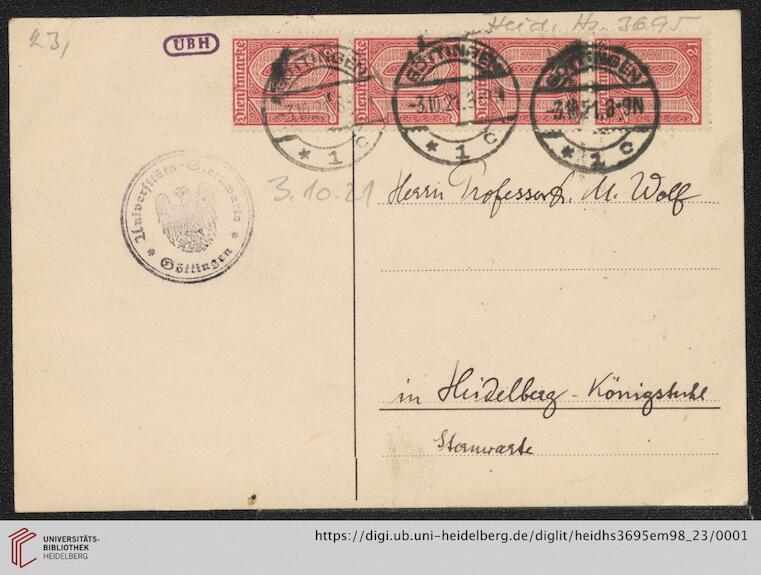 23,
UBH
Heid. Hs. 3695
Dienstmarke
Dienstmarke
Dienstmarke
21
GÖTTINGEN
* 1 c
GÖTTINGEN
-3.10.21
* 1 c
GÖTTINGEN
-3.10.21. 8-9N
* 1 c
Universitäts-Sternwarte
* Göttingen *
3.10.21
Herrn Professor Dr. M. Wolf
in Heidelberg-Königstuhl
Sternwarte
UNIVERSITÄTS-
BIBLIOTHEK
HEIDELBERG
https://digi.ub.uni-heidelberg.de/diglit/heidhs3695em98_23/0001